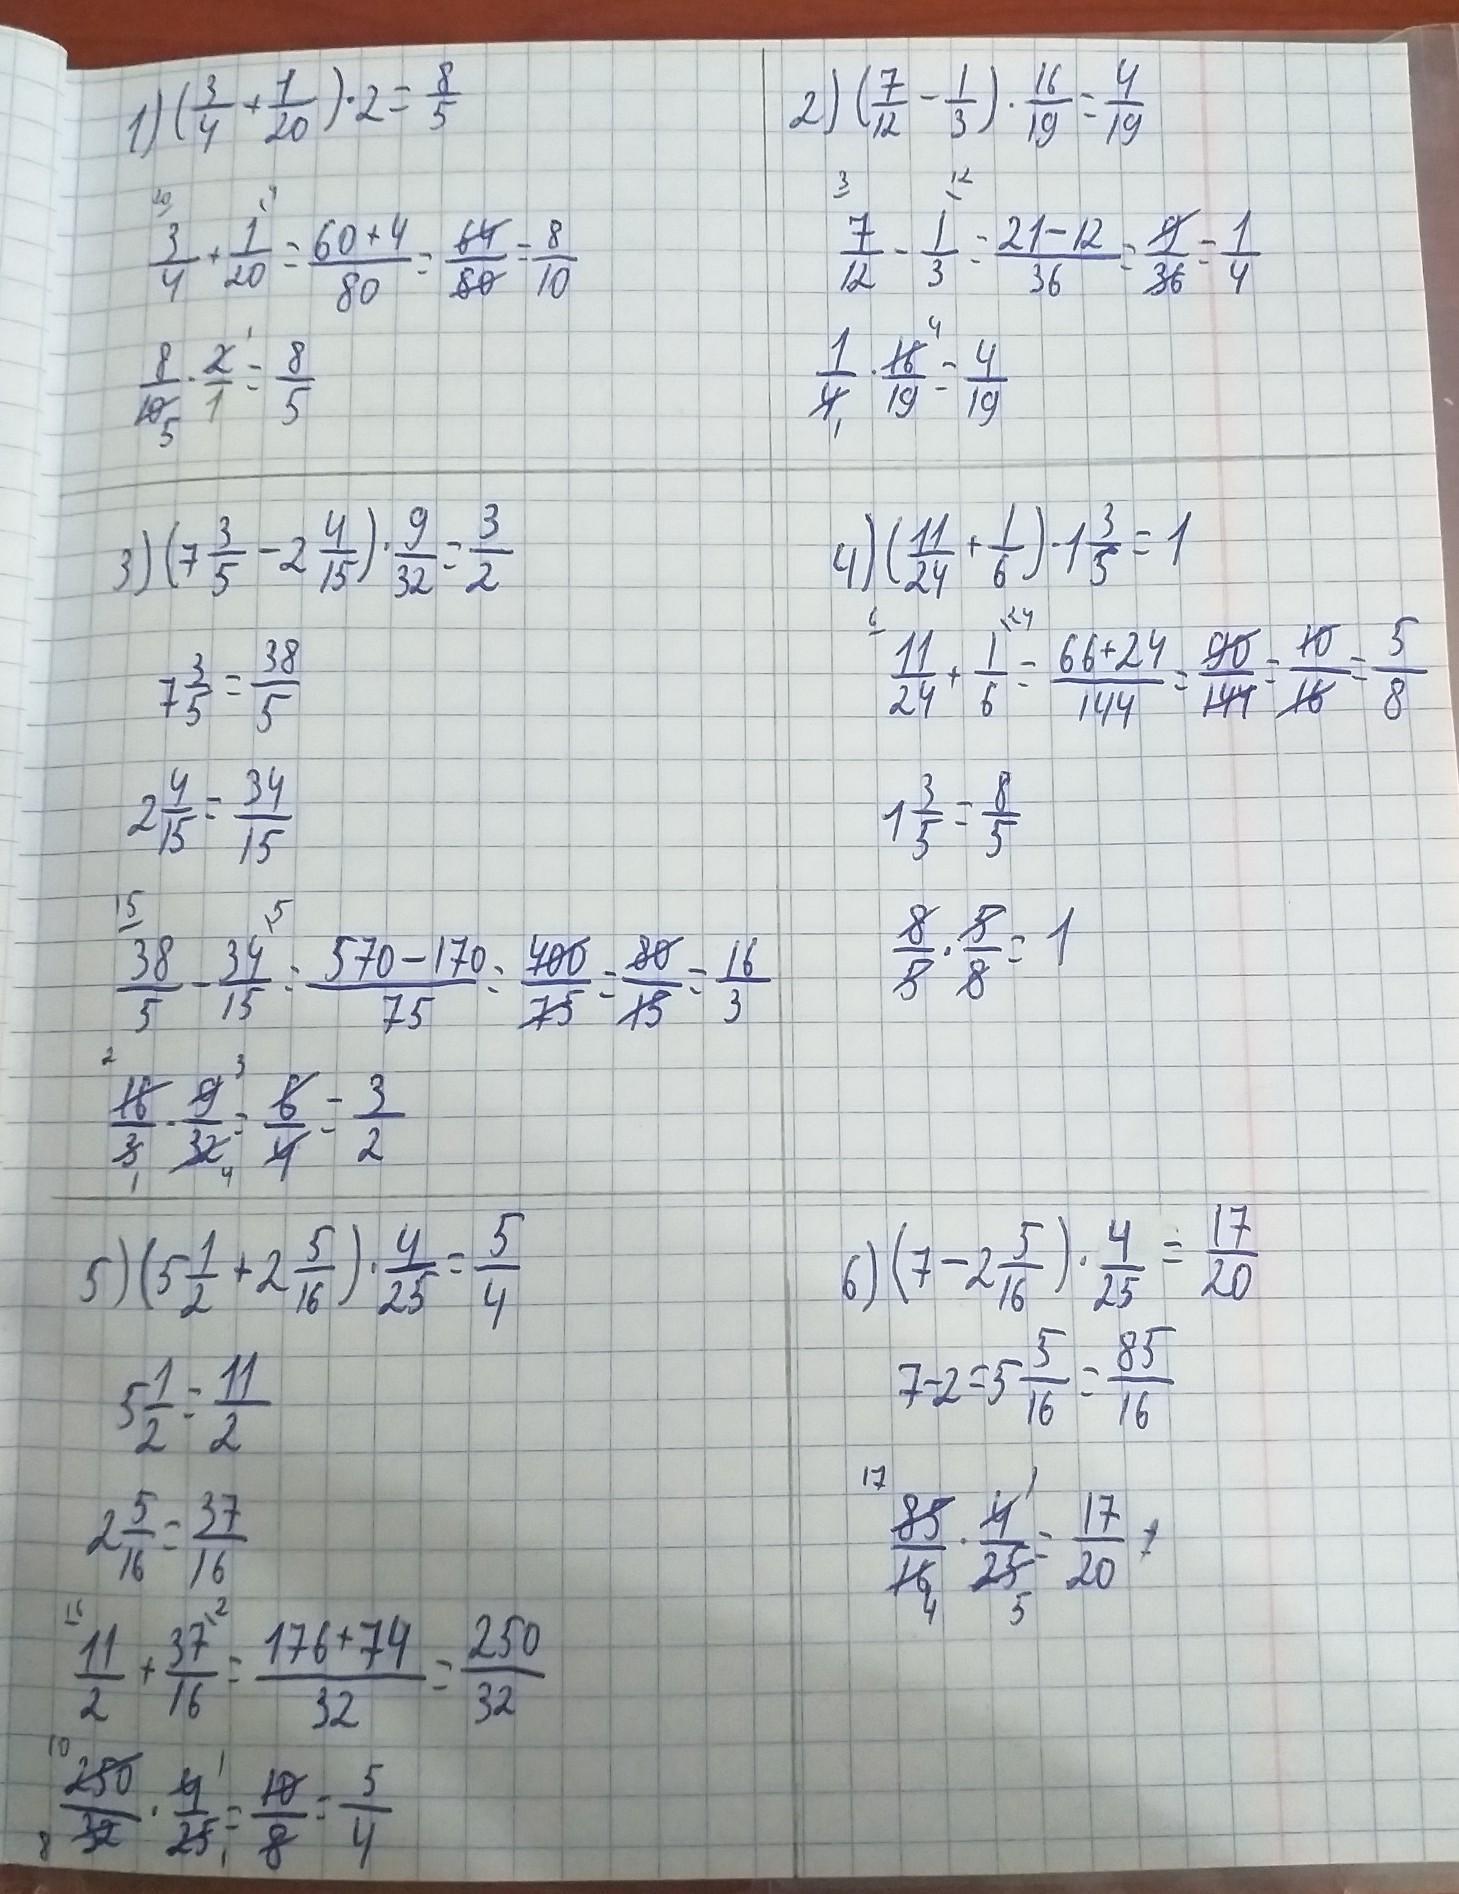 1) (3/4 + 1/20) · 2 = 8/5
20 4
3/4 + 1/20 = 60+4/80 = 64/80 = 8/10
1
8/10 · 2/1 = 8/5
5
2) (7/12 - 1/3) · 16/19 = 4/19
3 12
7/12 - 1/3 = 21-12/36 = 9/36 = 1/4
4
1/4 · 16/19 = 4/19
1
3) (7 3/5 - 2 4/15) · 9/32 = 3/2
7 3/5 = 38/5
2 4/15 = 34/15
15 5
38/5 - 34/15 = 570-170/75 = 400/75 = 80/15 = 16/3
2 3
16/3 · 9/32 = 6/4 = 3/2
1 4
4) (11/24 + 1/6) · 1 3/5 = 1
6 24
11/24 + 1/6 = 66+24/144 = 90/144 = 10/16 = 5/8
1 3/5 = 8/5
8/5 · 5/8 = 1
5) (5 1/2 + 2 5/16) · 4/25 = 5/4
5 1/2 = 11/2
2 5/16 = 37/16
16 2
11/2 + 37/16 = 176+74/32 = 250/32
10 1
250/32 · 4/25 = 10/8 = 5/4
8 1
6) (7 - 2 5/16) · 4/25 = 17/20
7-2 = 5 5/16 = 85/16
17 1
85/16 · 4/25 = 17/20
4 5